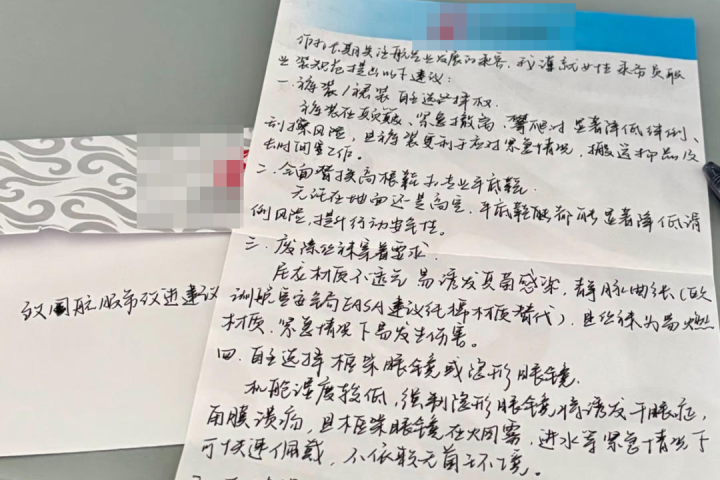 作为长期关注航空业发展的乘客，我谨就女性乘务员职
业装规范提出以下建议：
一、裤装/裙装自主选择权
裤装在颠簸、紧急撤离、攀爬时显著降低绊倒、
刮擦风险，且裤装更利于应对紧急情况，搬运物品及
长时间工作。
二、全面替换高跟鞋为专业平底鞋
无论在地面还是高空，平底鞋都能显著降低滑
倒风险，提升行动安全性。
三、废除丝袜穿着要求
尼龙材质不透气易诱发真菌感染，静脉曲张（欧
洲航空安全局EASA建议纯棉材质替代），且丝袜为易燃
材质，紧急情况下易发生伤害。
四、自主选择框架眼镜或隐形眼镜
机舱湿度较低，强制隐形眼镜将诱发干眼症，
角膜溃疡，且框架眼镜在火、烟雾，进水等紧急情况下
可快速佩戴，不依赖无菌环境。
致国航服饰改进建议